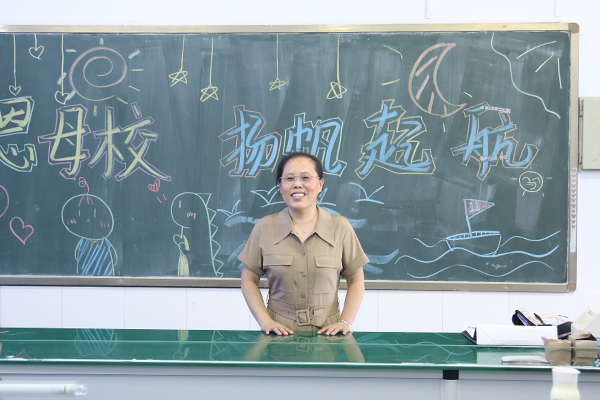 恩母校 扬帆起航